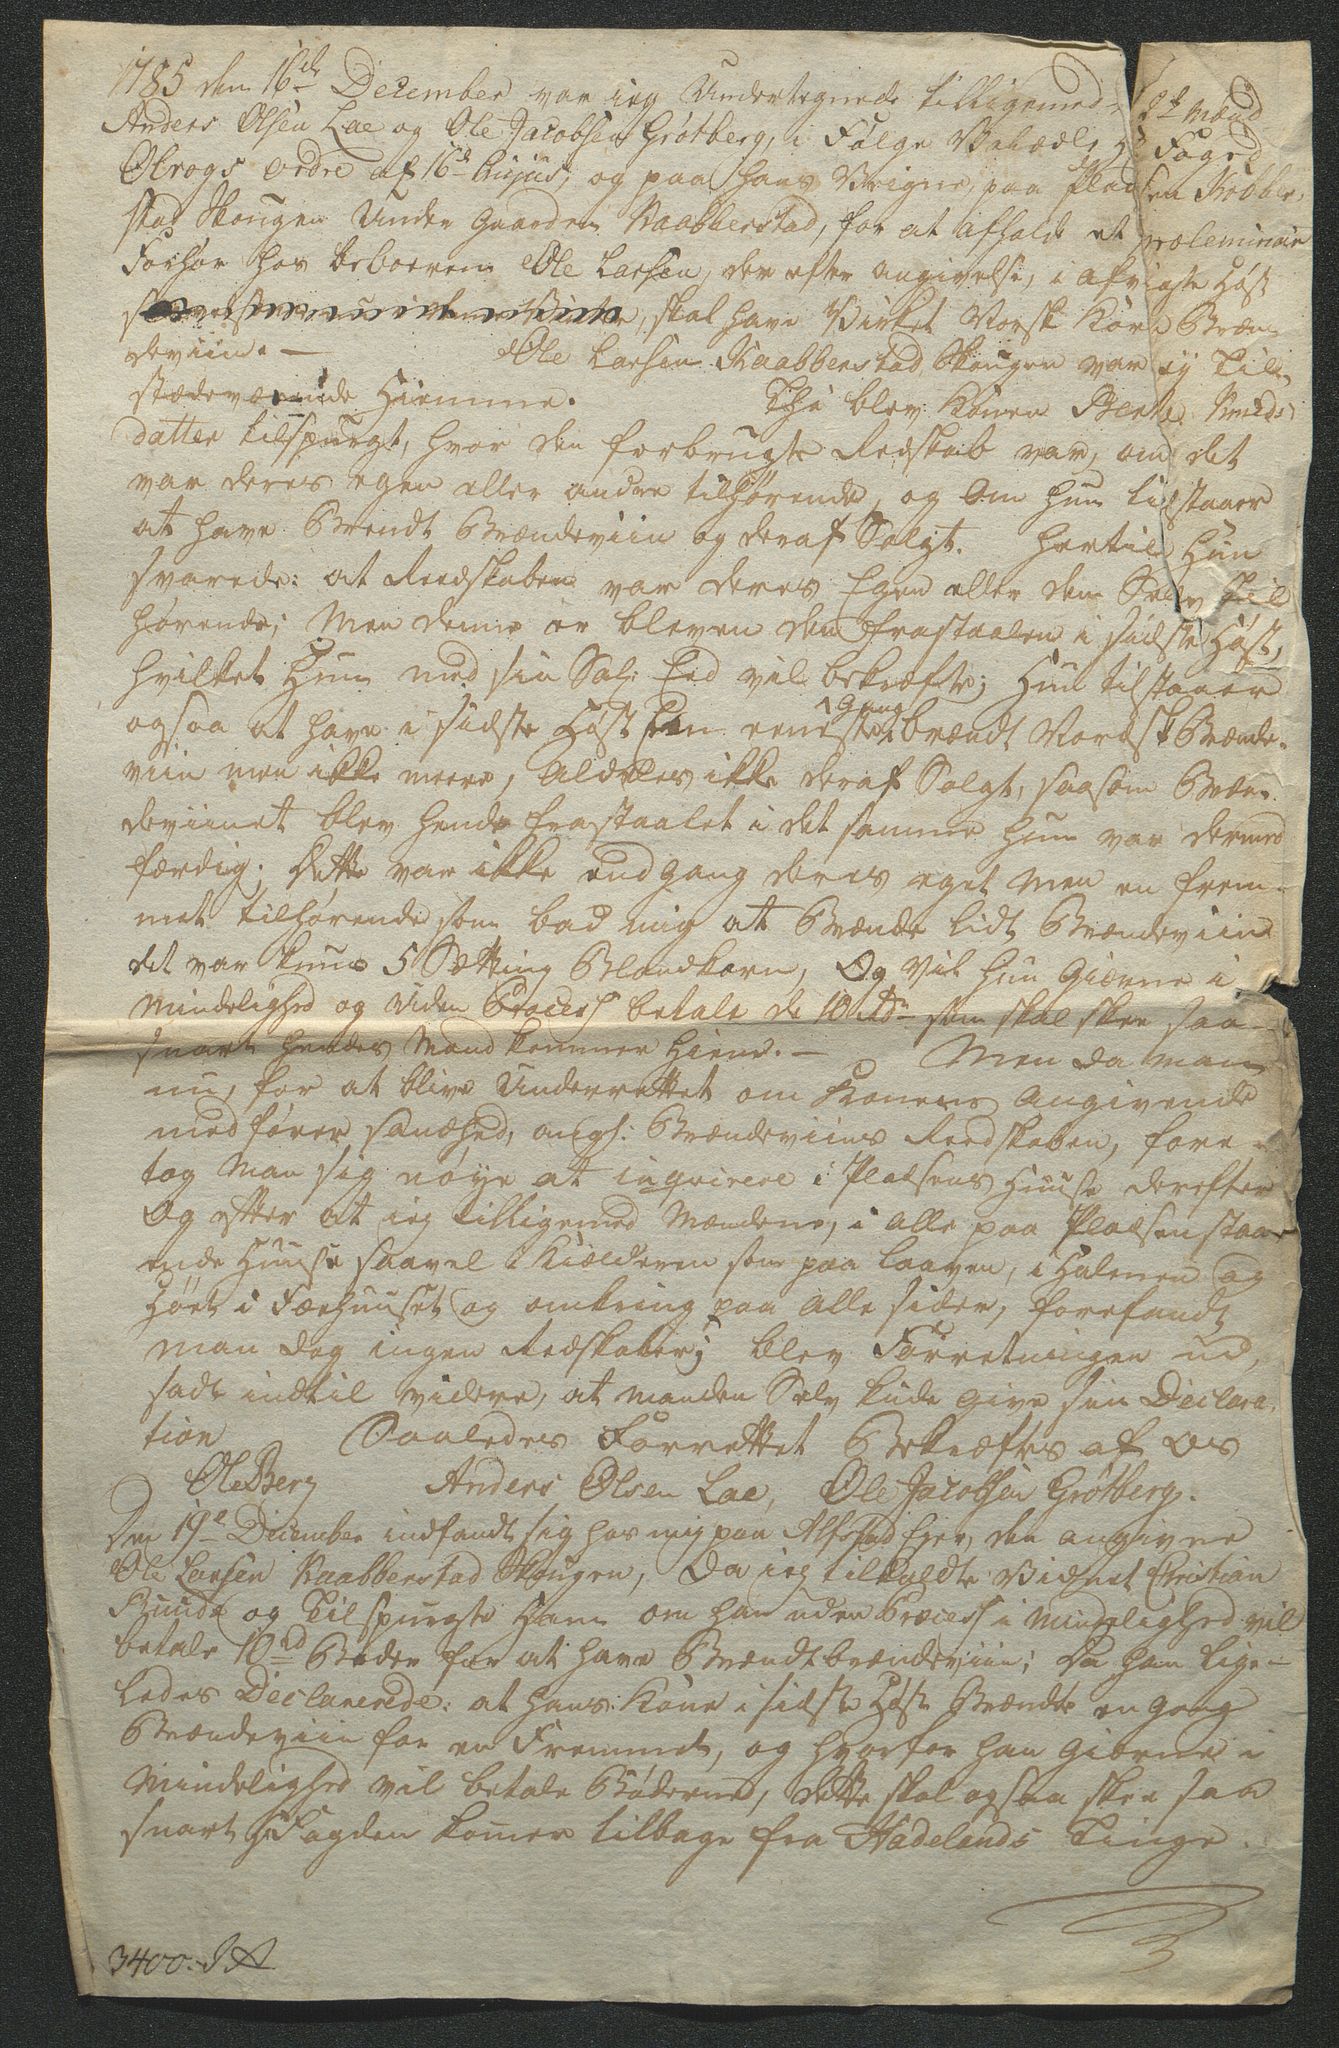 1785 den 16de December var jeg Undertegnede tilligemed 2de Mænd
Anders Olsen Lae og Ole Jacobsen Grøtberg, i Følge Velædl: Hr Foged
Obrogs ordre af 16de hujus, og paa hans Vegne, paa Pladsen Robber-
stad Skougen Under Gaarden Raabberstad, for at afholde et præleminair
Forhør hos beboeren Ole Larsen, der efter angivelse, i afvigte Høst
skal have Virket Norsk Korn Bræn-
deviin. — Ole Larsen Raabberstad Skougen var ej Till-
stædeværende Hiemme. Thi blev Konen Berte Knuds-
datter tilspurgt, hvor den forbrugte Redskab var, om det
var deres egen eller andre tilhørende, og om hun tilstaaer
at have Brendt Brændeviin og deraf Solgt. Hertil Hun
svarede: at Reedskaben var deres Egen eller dem Selv till
hørende; Men denne er bleven dem frastaalen i sidste Høst,
hvilket Hun med sin Sal: Eed vil bekræfte; Hun tilstaaer
ogsaa at have i sidste Høst Een eeneste Gang brændt Nordsk Brænde-
viin men ikke meere, Aldeles ikke deraf Solgt, saasom Bræn-
deviinet blev hende frastaalet i det samme hun var dermed
færdig; Dette var ikke endgang deres eget Men en frem-
met tilhørende som bad mig at Brænde lidt Brændeviin
det var kuns 5 Sætting Blandkorn, Og vil hun Gierne i
Mindelighed og uden Process betale de 10 Rdr som skal skee saa-
snart hendes Mand kommer Hiem. — Men da man
nu, for at blive Underrettet om Konens Angivende
medfører sandhed, angl: Brændeviins Reedskaben, fore-
tog Man sig nøye at inqvirere i Pladsens Huuse derefter
Og efter at jeg tilligemed Mændene, i alle paa Pladsen staa-
ende Huuse saavel i Kielderen som paa Laaven, i Halmen og
Høet i Fæehuuset og omkring paa alle sider, forefandt
man dog ingen Redskaber; blev Forretningen ud,
sadt indtil videre, at manden Selv kunde give sin Declara-
tion Saaledes Forrettet Bekræftes af Os
Ole Berg Anders Olsen Lae, Ole Jacobsen Grøtberg.
Den 19de December indfandt sig hos mig paa Alfstad Eyer, den angivne
Ole Larsen Raabberstad Skougen, Da jeg tilkaldte Vidnet Christian
Ruud og Tilspurgte Ham om han uden Process i Mindelighed vil
betale 10 Rd Bøder for at have Brændt brændeviin; Da han lige-
ledes Declarerede: at hans Kone i sidste Høst Brændte en gang
Brændeviin for en Fremmet, og hvorfor han Gierne i
Mindelighed vil betale Bøderne, dette skal ogsaa skee saa
snart Hr Fogden komer tilbage fra Hadelands Tinge.
3400. J A